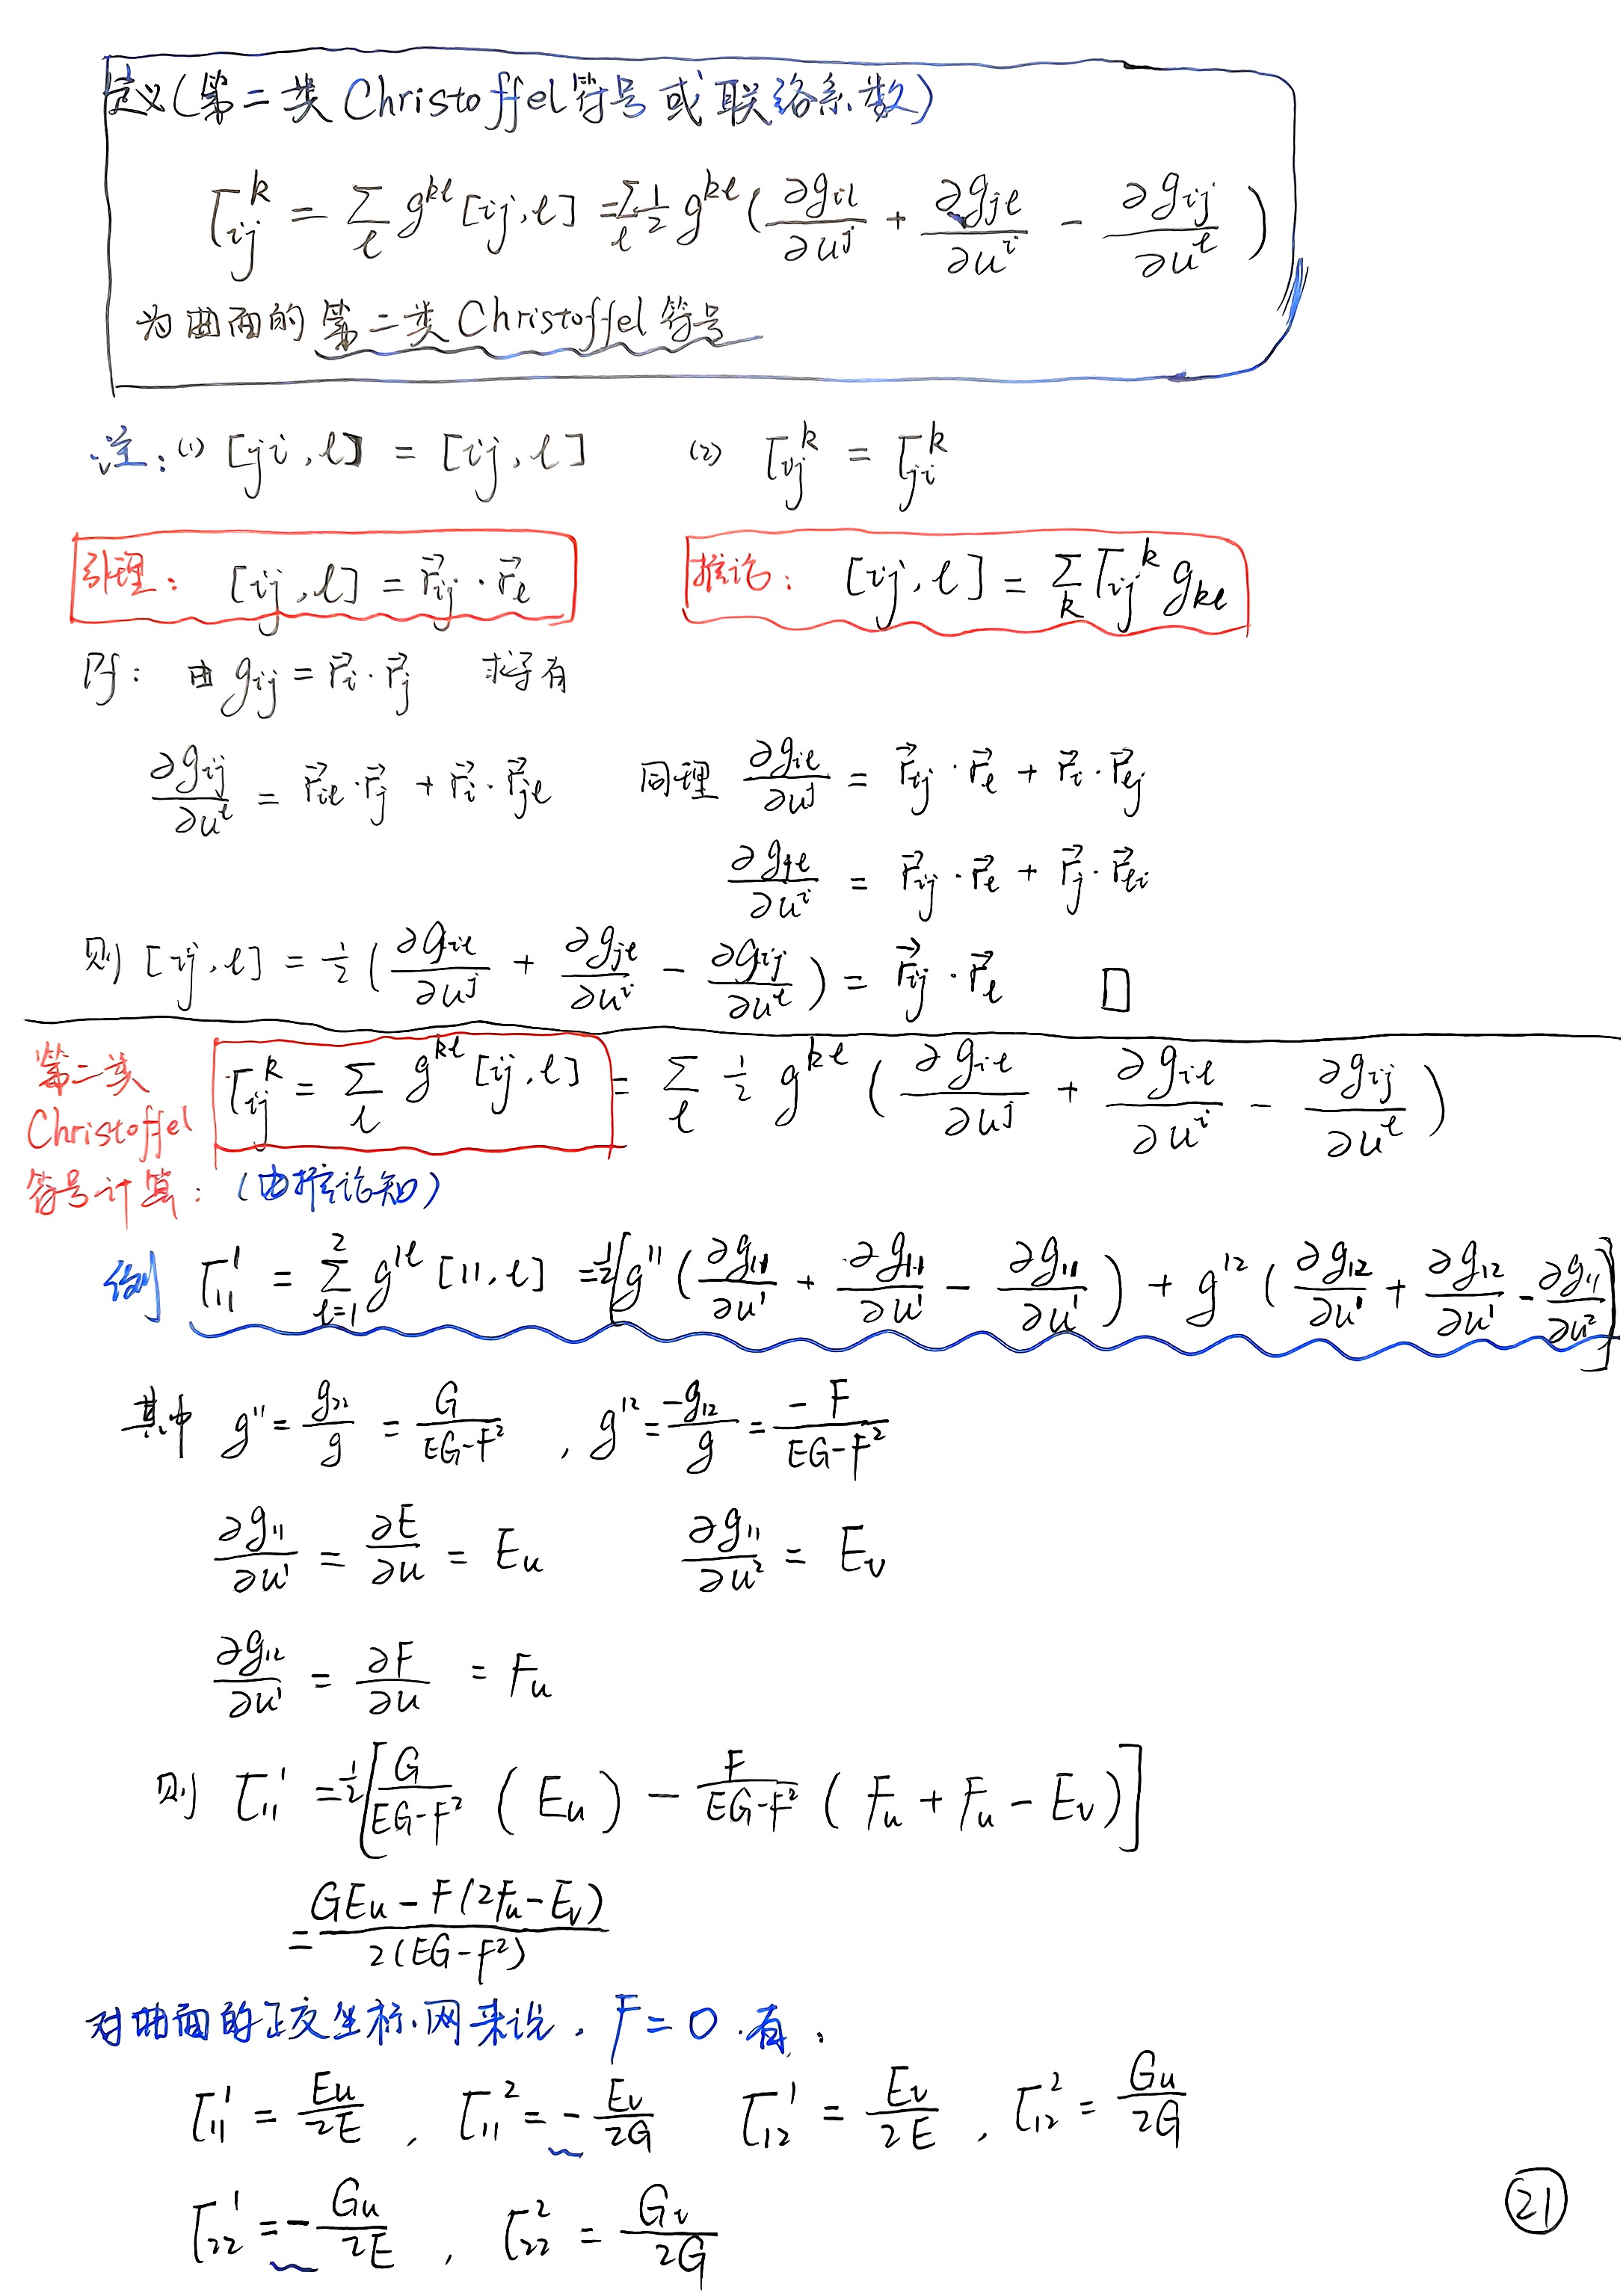 定义(第二类 Christoffel 符号 或 联络系数)
Γ_{ij}^k = Σ_l g^{kl} [ij, l] = Σ_l ½ g^{kl} ( ∂g_{il}/∂u^j + ∂g_{jl}/∂u^i − ∂g_{ij}/∂u^l )
为曲面的 第二类 Christoffel 符号
注: (1) [ji, l] = [ij, l] (2) Γ_{ij}^k = Γ_{ji}^k
引理: [ij, l] = r⃗_{ij} · r⃗_l 推论: [ij, l] = Σ_k Γ_{ij}^k g_{kl}
Pf: 由 g_{ij} = r⃗_i · r⃗_j 求导有
∂g_{ij}/∂u^l = r⃗_{il} · r⃗_j + r⃗_i · r⃗_{jl} 同理 ∂g_{il}/∂u^j = r⃗_{ij} · r⃗_l + r⃗_i · r⃗_{lj}
∂g_{jl}/∂u^i = r⃗_{ij} · r⃗_l + r⃗_j · r⃗_{li}
则 [ij, l] = ½ ( ∂g_{il}/∂u^j + ∂g_{jl}/∂u^i − ∂g_{ij}/∂u^l ) = r⃗_{ij} · r⃗_l □
第二类
Christoffel
符号计算:
Γ_{ij}^k = Σ_l g^{kl} [ij, l] = Σ_l ½ g^{kl} ( ∂g_{il}/∂u^j + ∂g_{il}/∂u^i − ∂g_{ij}/∂u^l )
(由推论知)
例 Γ_{11}^1 = Σ_{l=1}^2 g^{1l} [11, l] = ½ [ g^{11} ( ∂g_{11}/∂u^1 + ∂g_{11}/∂u^1 − ∂g_{11}/∂u^1 ) + g^{12} ( ∂g_{12}/∂u^1 + ∂g_{12}/∂u^1 − ∂g_{11}/∂u^2 ) ]
其中 g^{11} = g_{22}/g = G/(EG−F²) , g^{12} = −g_{12}/g = −F/(EG−F²)
∂g_{11}/∂u^1 = ∂E/∂u = E_u ∂g_{11}/∂u^2 = E_v
∂g_{12}/∂u^1 = ∂F/∂u = F_u
则 Γ_{11}^1 = ½ [ G/(EG−F²) ( E_u ) − F/(EG−F²) ( F_u + F_u − E_v ) ]
= (GE_u − F(2F_u − E_v)) / 2(EG−F²)
对曲面的正交坐标网来说, F = 0. 有,
Γ_{11}^1 = E_u/2E , Γ_{11}^2 = − E_v/2G Γ_{12}^1 = E_v/2E , Γ_{12}^2 = G_u/2G
Γ_{22}^1 = − G_u/2E , Γ_{22}^2 = G_v/2G
21